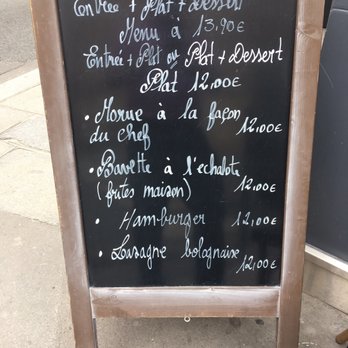 Entrée + Plat + Dessert
Menu à 13,90€
Entrée + Plat ou Plat + Dessert
Plat 12,00€
• Morue à la façon
du chef 12,00€
• Bavette à l'echalote
(frites maison) 12,00€
• Hamburger 12,00€
• Lasagne bolognaise
12,00€